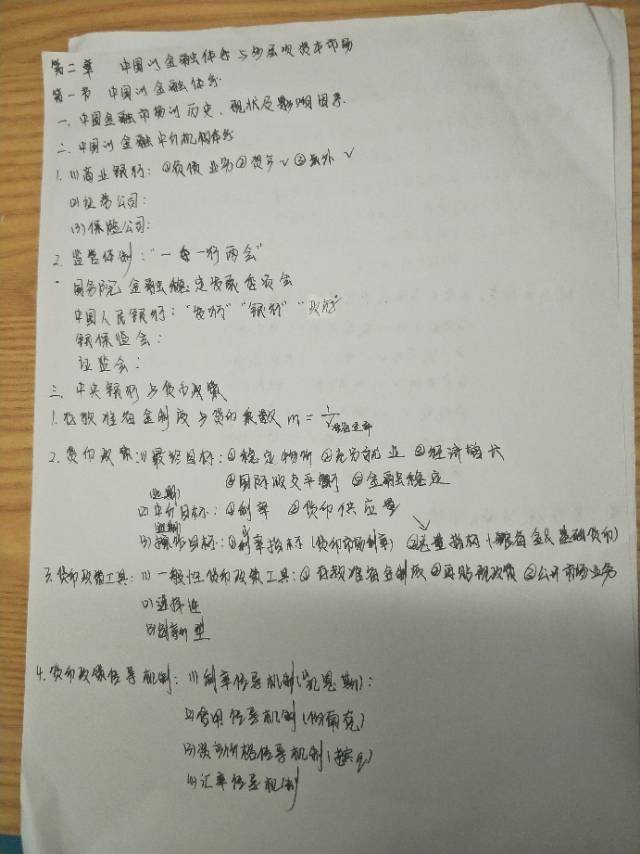 第二章 中国的金融体系与多层次资本市场
第一节 中国的金融体系
一、中国金融市场的历史、现状及影响因素
二、中国的金融中介机构体系
1.(1)商业银行:①负债 业务②资产√③表外√
(2)证券公司:
(3)保险公司:
2.监管体制:“一委一行两会”
国务院金融稳定发展委员会
中国人民银行:“发行”“银行”“政府”
银保监会:
证监会:
三、中央银行与货币政策
1.存款准备金制度与货币乘数 m=1/准备金率
2.货币政策:(1)最终目标:①稳定物价②充分就业③经济增长
④国际收支平衡⑤金融稳定
(远期)
(2)中介目标:①利率 ②货币供应量
(近期)
(3)操作目标:①利率指标(货币市场利率) ②总量指标(准备金&基础货币)
3.货币政策工具:(1)一般性货币政策工具:①存款准备金制度②再贴现政策③公开市场业务
(2)选择性
(3)创新型
4.货币政策传导机制:(1)利率传导机制(凯恩斯):
(2)信用传导机制(伯南克)
(3)资产价格传导机制(托宾q)
(4)汇率传导机制